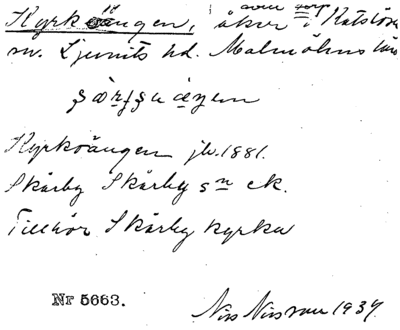 Kyrkoängen, åker i Katslösa
sn. Ljunits hd. Malmöhus län
Kyrkoängen jb. 1881.
Skårby Skårby sn ek.
Tillhör Skårby kyrka
Nr 5663.
Nils Nilsson 1934